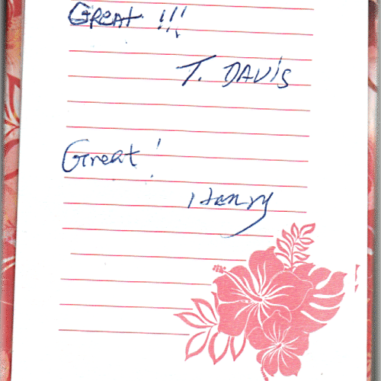 GREAT !!!
T. DAVIS
Great!
Henry